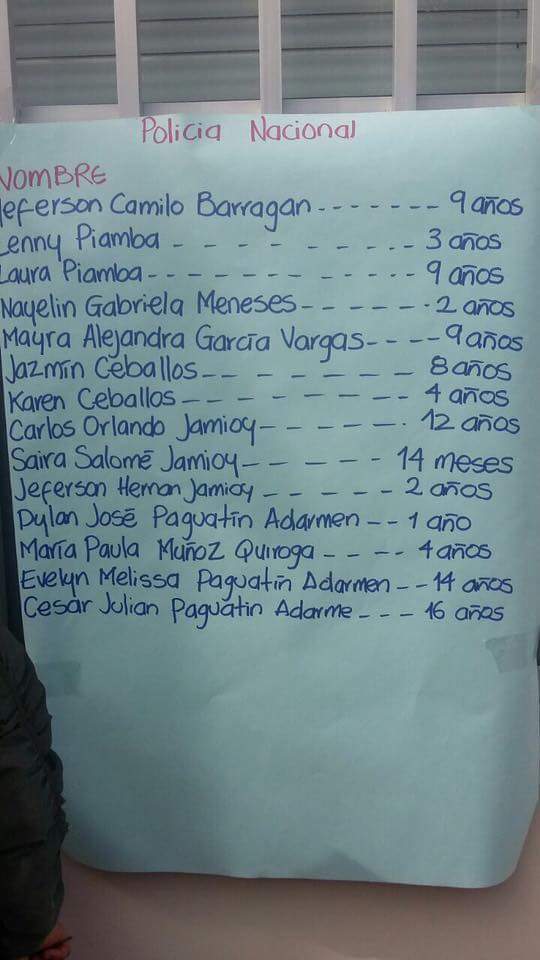 Policia Nacional
NOMBRE
Jeferson Camilo Barragan ------- 9 años
Lenny Piamba --------- 3 años
Laura Piamba ----------- 9 años
Nayelin Gabriela Meneses ------ 2 años
Mayra Alejandra García Vargas ---- 9 años
Jazmín Ceballos ------- 8 años
Karen Ceballos -------- 4 años
Carlos Orlando Jamioy ------ 12 años
Saira Salomé Jamioy ------ 14 meses
Jeferson Hernan Jamioy ----- 2 años
Dylan José Paguatin Adarmen -- 1 año
María Paula Muñoz Quiroga ---- 4 años
Evelyn Melissa Paguatin Adarmen -- 14 años
Cesar Julian Paguatin Adarme --- 16 años